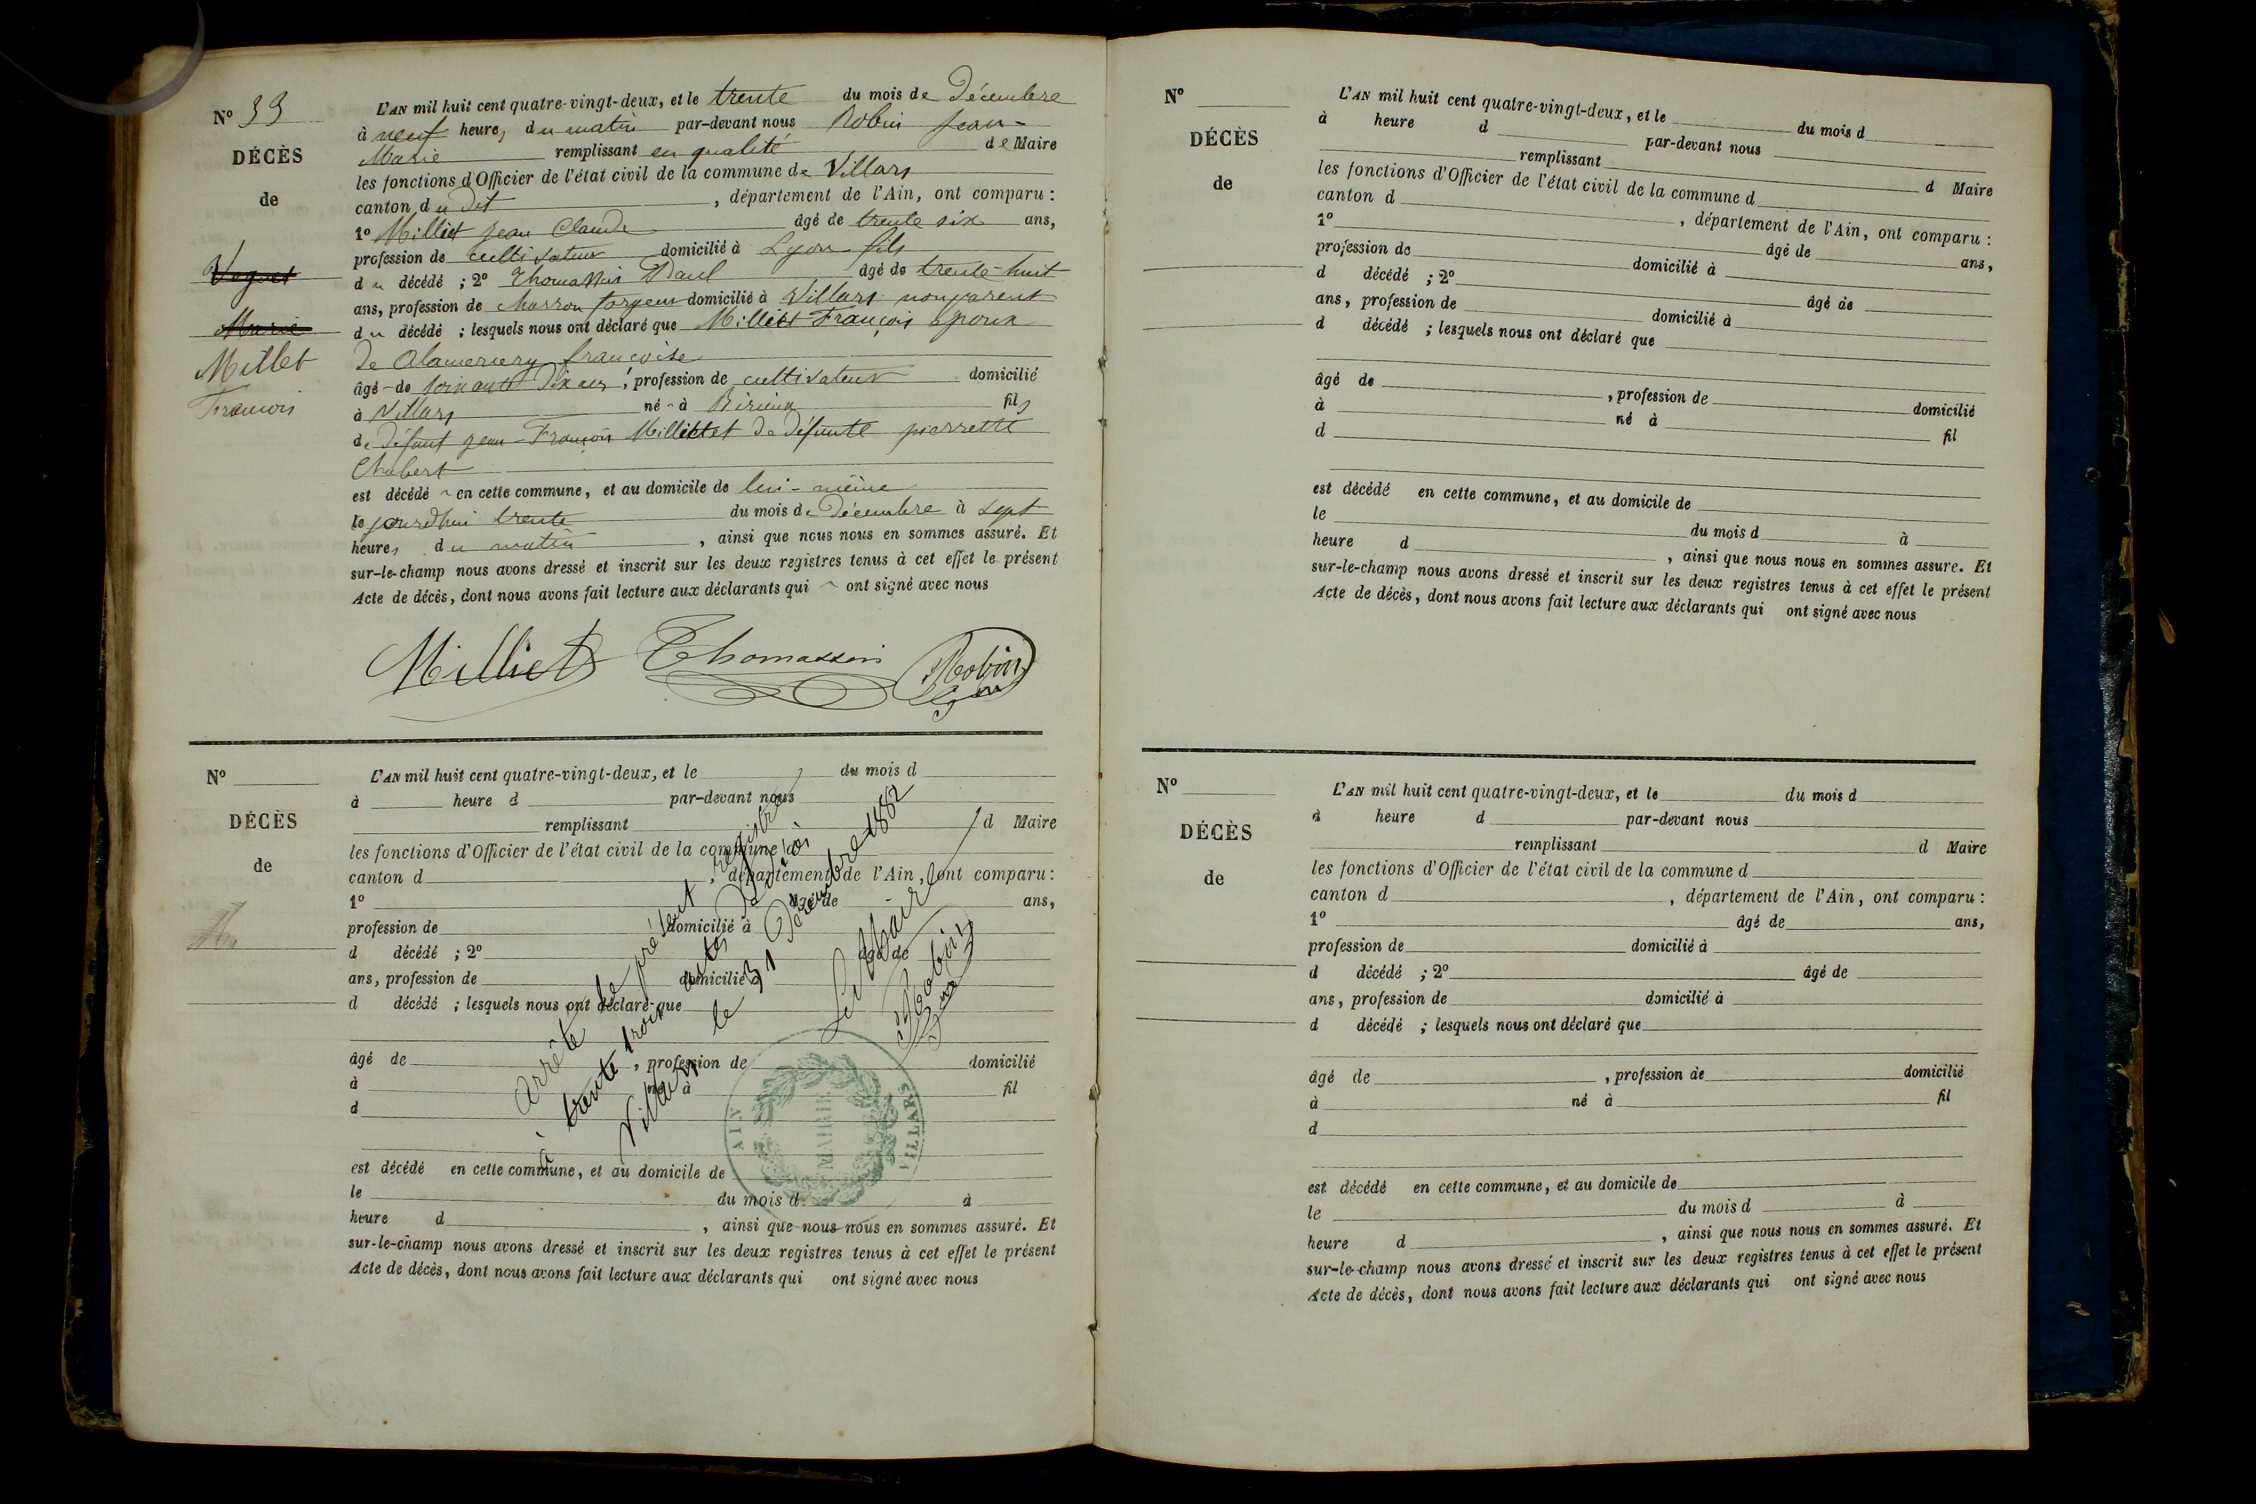 N° 33
DÉCÈS
de
Voguet
Marie
Millet
François
L'AN mil huit cent quatre-vingt-deux, et le trente du mois de Décembre
à neuf heures du matin par-devant nous Robin Jean-
Marie remplissant en qualité de Maire
les fonctions d'Officier de l'état civil de la commune de Villars
canton du dit, département de l'Ain, ont comparu :
1° Milliet Jean Claude âgé de trente six ans,
profession de cultivateur domicilié à Lyon fils
du décédé ; 2° Thomassin Paul âgé de trente-huit
ans, profession de charron forgeur domicilié à Villars non parent
du décédé ; lesquels nous ont déclaré que Milliet François époux
de françoise
âgé de soixante dix ans, profession de cultivateur domicilié
à Villars né à Birieux fils
de défunt jean-François Milliet et de défunte pierrette
Chabert
est décédé en cette commune, et au domicile de lui-même
le jourdhui trente du mois de Décembre à sept
heures du matin, ainsi que nous nous en sommes assuré. Et
sur-le-champ nous avons dressé et inscrit sur les deux registres tenus à cet effet le présent
Acte de décès, dont nous avons fait lecture aux déclarants qui ont signé avec nous
Milliet Thomassin Robin
N°
DÉCÈS
de
L'AN mil huit cent quatre-vingt-deux, et le du mois d
à heure d par-devant nous
remplissant d Maire
les fonctions d'Officier de l'état civil de la commune d
canton d , département de l'Ain, ont comparu :
1° âgé de ans,
profession de domicilié à
d décédé ; 2° âgé de
ans, profession de domicilié à
d décédé ; lesquels nous ont déclaré que
âgé de , profession de domicilié
à né à fil
d
est décédé en cette commune, et au domicile de
le du mois d à
heure d , ainsi que nous nous en sommes assuré. Et
sur-le-champ nous avons dressé et inscrit sur les deux registres tenus à cet effet le présent
Acte de décès, dont nous avons fait lecture aux déclarants qui ont signé avec nous
Arrêté le présent registre
à trente trois actes de décès
Villars le 31 Décembre 1882
Le Maire
Robin
AIN MAIRIE VILLARS
N°
DÉCÈS
de
L'AN mil huit cent quatre-vingt-deux, et le du mois d
à heure d par-devant nous
remplissant d Maire
les fonctions d'Officier de l'état civil de la commune d
canton d , département de l'Ain, ont comparu :
1° âgé de ans,
profession de domicilié à
d décédé ; 2° âgé de
ans, profession de domicilié à
d décédé ; lesquels nous ont déclaré que
âgé de , profession de domicilié
à né à fil
d
est décédé en cette commune, et au domicile de
le du mois d à
heure d , ainsi que nous nous en sommes assuré. Et
sur-le-champ nous avons dressé et inscrit sur les deux registres tenus à cet effet le présent
Acte de décès, dont nous avons fait lecture aux déclarants qui ont signé avec nous
N°
DÉCÈS
de
L'AN mil huit cent quatre-vingt-deux, et le du mois d
à heure d par-devant nous
remplissant d Maire
les fonctions d'Officier de l'état civil de la commune d
canton d , département de l'Ain, ont comparu :
1° âgé de ans,
profession de domicilié à
d décédé ; 2° âgé de
ans, profession de domicilié à
d décédé ; lesquels nous ont déclaré que
âgé de , profession de domicilié
à né à fil
d
est décédé en cette commune, et au domicile de
le du mois d à
heure d , ainsi que nous nous en sommes assuré. Et
sur-le-champ nous avons dressé et inscrit sur les deux registres tenus à cet effet le présent
Acte de décès, dont nous avons fait lecture aux déclarants qui ont signé avec nous